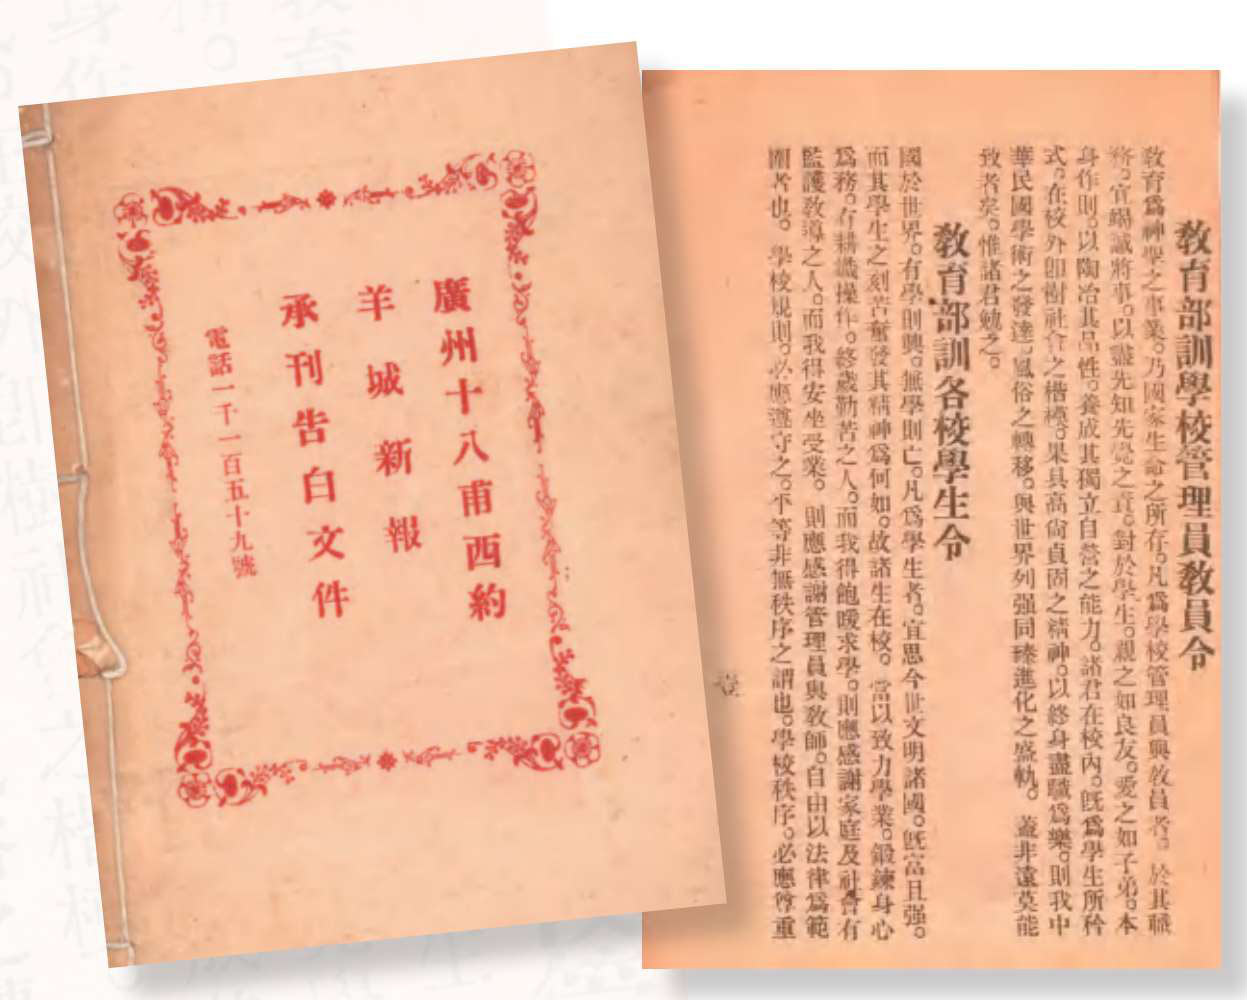 廣州十八甫西約
羊城新報
承刊告白文件
電話一千一百五十九號
敎育部訓學校管理員敎員令
敎育爲神聖之事業。乃國家生命之所存。凡爲學校管理員與敎員者。於其職
務。宜竭誠將事。以盡先知先覺之責。對於學生。親之如良友。愛之如子弟。本
身作則。以陶冶其品性。養成其獨立自營之能力。諸君在校內。旣爲學生所矜
式。在校外卽樹社會之楷模。果具高尙貞固之精神。以終身盡職爲樂。則我中
華民國學術之發達。風俗之轉移。與世界列强同臻進化之盛軌。蓋非遠莫能
致者矣。惟諸君勉之。
敎育部訓各校學生令
國於世界。有學則興。無學則亡。凡爲學生者。宜思今世文明諸國。旣富且强。
而其學生之刻苦奮發其精神爲何如。故諸生在校。當以致力學業。鍛鍊身心
爲務。有耕織操作。終歲勤苦之人。而我得飽暖求學。則應感謝家庭及社會有
監護敎導之人。而我得安坐受業。則應感謝管理員與敎師。自由以法律爲範
圍者也。學校規則。必應遵守之。平等非無秩序之謂也。學校秩序。必應尊重
壹